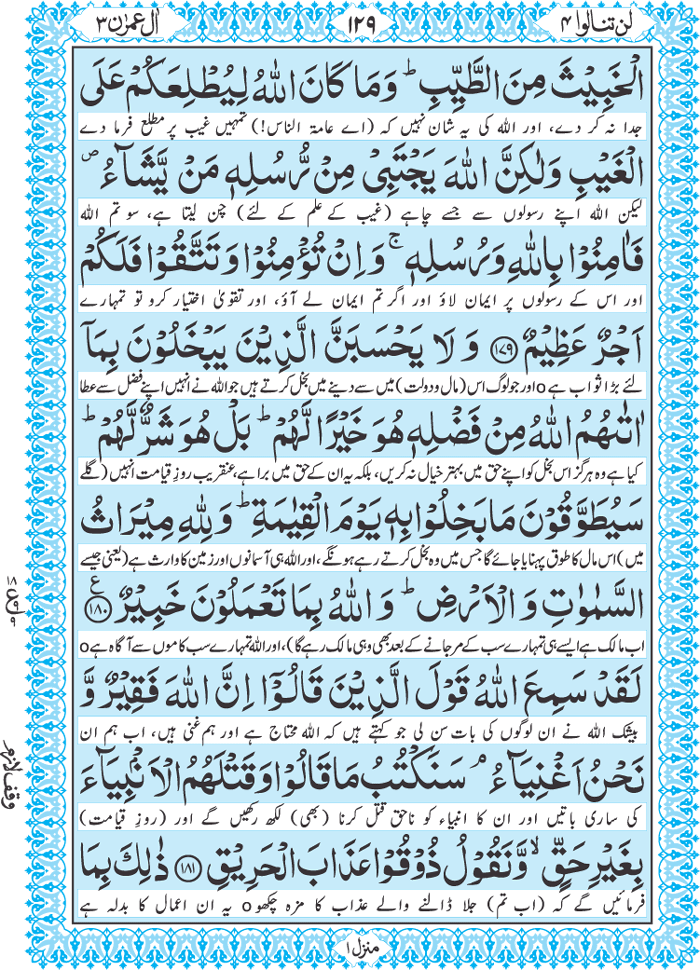 لن تنالوا ۴ ۱۲۹ اٰل عمرٰن ۳
الْخَبِيْثَ مِنَ الطَّيِّبِ ؕ وَمَا كَانَ اللّٰهُ لِيُطْلِعَكُمْ عَلَى
جدا نہ کر دے، اور اللہ کی یہ شان نہیں کہ (اے عامۃ الناس!) تمہیں غیب پر مطلع فرما دے
الْغَيْبِ وَلٰكِنَّ اللّٰهَ يَجْتَبِىْ مِنْ رُّسُلِهٖ مَنْ يَّشَآءُ ۪
لیکن اللہ اپنے رسولوں سے جسے چاہے (غیب کے علم کے لئے) چن لیتا ہے، سو تم اللہ
فَاٰمِنُوْا بِاللّٰهِ وَرُسُلِهٖ ۚ وَاِنْ تُؤْمِنُوْا وَتَتَّقُوْا فَلَكُمْ
اور اس کے رسولوں پر ایمان لاؤ اور اگر تم ایمان لے آؤ، اور تقویٰ اختیار کرو تو تمہارے
اَجْرٌ عَظِيْمٌ ﴿۱۷۹﴾ وَلَا يَحْسَبَنَّ الَّذِيْنَ يَبْخَلُوْنَ بِمَاۤ
لئے بڑا ثواب ہے o اور جو لوگ اس (مال و دولت) میں سے دینے میں بخل کرتے ہیں جو اللہ نے انہیں اپنے فضل سے عطا
اٰتٰٮهُمُ اللّٰهُ مِنْ فَضْلِهٖ هُوَ خَيْرًا لَّهُمْ ؕ بَلْ هُوَ شَرٌّ لَّهُمْ ؕ
کیا ہے وہ ہرگز اس بخل کو اپنے حق میں بہتر خیال نہ کریں، بلکہ یہ ان کے حق میں برا ہے، عنقریب روزِ قیامت انہیں (گلے
سَيُطَوَّقُوْنَ مَا بَخِلُوْا بِهٖ يَوْمَ الْقِيٰمَةِ ؕ وَلِلّٰهِ مِيْرَاثُ
میں) اس مال کا طوق پہنایا جائے گا جس میں وہ بخل کرتے رہے ہونگے، اور اللہ ہی آسمانوں اور زمین کا وارث ہے (یعنی جیسے
السَّمٰوٰتِ وَالْاَرْضِ ؕ وَاللّٰهُ بِمَا تَعْمَلُوْنَ خَبِيْرٌ ﴿۱۸۰﴾ ع
اب مالک ہے ایسے ہی تمہارے سب کے مرجانے کے بعد بھی وہی مالک رہے گا)، اور اللہ تمہارے سب کاموں سے آگاہ ہے o
لَقَدْ سَمِعَ اللّٰهُ قَوْلَ الَّذِيْنَ قَالُوْۤا اِنَّ اللّٰهَ فَقِيْرٌ وَّ
بیشک اللہ نے ان لوگوں کی بات سن لی جو کہتے ہیں کہ اللہ محتاج ہے اور ہم غنی ہیں، اب ہم ان
نَحْنُ اَغْنِيَآءُ ۘ سَنَكْتُبُ مَا قَالُوْا وَقَتْلَهُمُ الْاَنْۢبِيَآءَ
کی ساری باتیں اور ان کا انبیاء کو ناحق قتل کرنا (بھی) لکھ رکھیں گے اور (روزِ قیامت)
وقف لازم
بِغَيْرِ حَقٍّ ۙ وَّنَقُوْلُ ذُوْقُوْا عَذَابَ الْحَرِيْقِ ﴿۱۸۱﴾ ذٰلِكَ بِمَا
فرمائیں گے کہ (اب تم) جلا ڈالنے والے عذاب کا مزہ چکھو o یہ ان اعمال کا بدلہ ہے
منزل ۱